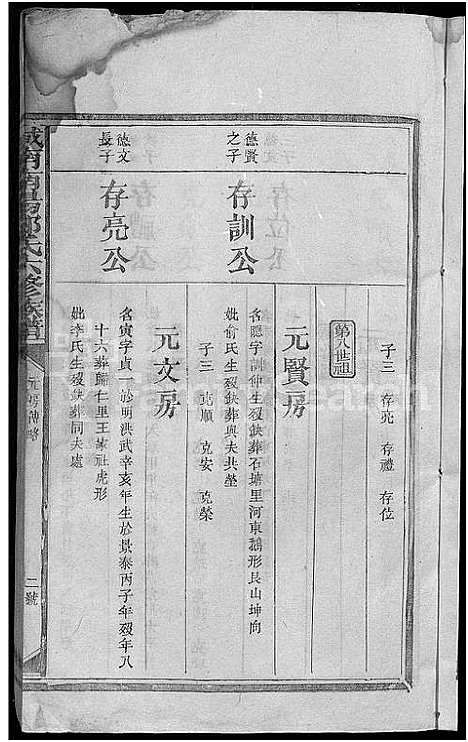 子三 存亮 存禮 存位
第八世祖
元賢房
德賢之子
存訓公
名聰字訓仲生歿缺葬石塘里河東鵝形艮山坤向
妣俞氏生歿缺葬與夫共塋
子三 克順 克安 克榮
元文房
德文長子
存亮公
名寅字貞一於明洪武辛亥年生於景泰丙子年歿年八
十六葬歸仁里王家社虎形
妣李氏生歿缺葬同夫處
氏六修族譜
元房傳略
二號